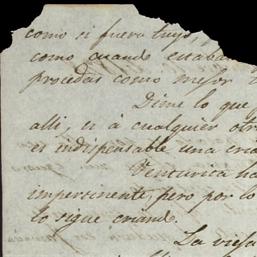 como si fuera tuyo,
como cuando estaba
procedas como mejor
Dime lo que
alli, si á cualquier otr
es indispensable una cri
Venturica ha
impertinente, pero por lo
lo sigue criando.
La vieja